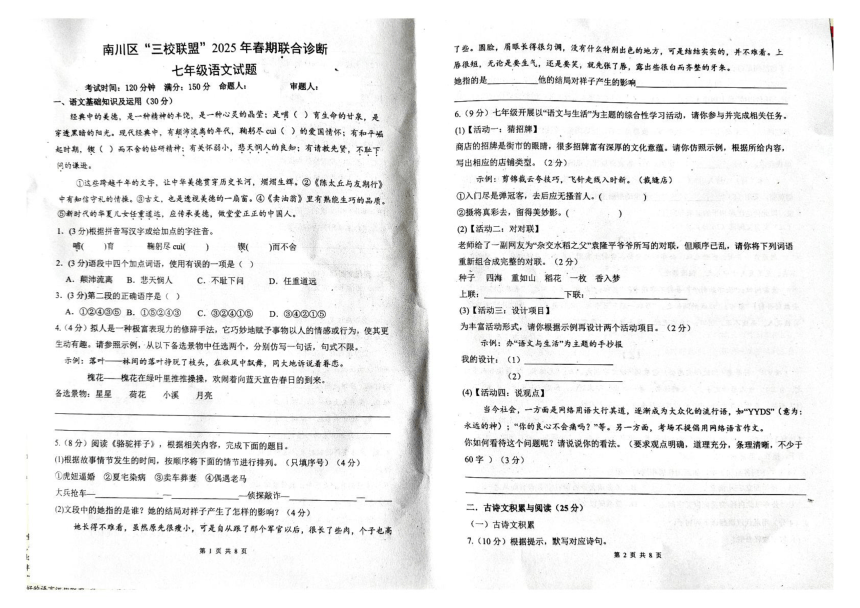 南川区“三校联盟”2025年春期联合诊断
七年级语文试题
考试时间：120分钟 满分：150分 命题人： 审题人：
一、语文基础知识及运用（30分）
经典中的美德，是一种精神的丰饶，是一种心灵的晶莹；是嘴（ ）有生命的甘泉，是
穿透黑暗的阳光。现代经典中，有颠沛流离的年代，鞠躬尽cuì（ ）的爱国情怀；有和平崛
起时期，锲（ ）而不舍的钻研精神；有关怀弱小，悲天悯人的良知；有请教先贤，不耻下
问的谦逊。
①这些跨越千年的文字，让中华美德贯穿历史长河，熠熠生辉。②《陈太丘与友期行》
中有知信守礼的情操。③古文，也是透视美德的一扇窗。④《卖油翁》里有熟能生巧的品质。
⑤新时代的华夏儿女任重道远，应传承美德，做堂堂正正的中国人。
1.（3分)根据拼音写汉字或给加点的字注音。
( )育 鞠躬尽cuì( ) 锲( )而不舍
2.（3分)语段中四个加点词语，使用有误的一项是（ ）
A．颠沛流离 B．悲天悯人 C．不耻下问 D．任重道远
3.（3分)第二段的正确语序是（ ）
A．①②④③⑤ B．①⑤②④③ C．③②④①⑤ D．③④②①⑤
4.（4分）拟人是一种极富表现力的修辞手法，它巧妙地赋予事物以人的情感或行为，使其更
生动有趣。请参照示例，从以下备选景物中任选两个，分别仿写一句话，句式不限。
示例：落叶——林间的落叶挣脱了枝头，在秋风中飘舞，同大地诉说着眷恋。
槐花——槐花在绿叶里推推搡搡，欢闹着向蓝天宣告春日的到来。
备选景物：星星 荷花 小溪 月亮
5.（8分）阅读《骆驼祥子》，根据相关内容，完成下面的题目。
(1)根据故事情节发生的时间，按顺序将下面的情节进行排列。（只填序号）（4分）
①虎妞逼婚 ②夏宅染病 ③卖车葬妻 ④偶遇老马
大兵抢车— — —侦探敲诈— —
(2)文段中的她指的是谁？她的结局对祥子产生了怎样的影响？（4分）
她长得不难看，虽然原先很瘦小，可是自从跟了那个军官以后，很长了些肉，个子也高
第1页共8页
了些。圆脸，眉眼长得很匀调，没有什么特别出色的地方，可是结结实实的，并不难看。上
唇很短，无论是要生气，还是要笑，就先张了唇，露出些很白而齐整的牙来。
她指的是 他的结局对祥子产生的影响
6.（9分）七年级开展以“语文与生活”为主题的综合性学习活动，请你参与并完成相关任务。
(1)【活动一：猜招牌】
商店的招牌是街市的眼睛，很多招牌富有深厚的文化意蕴。请你仿照示例，根据所给内容，
写出相应的店铺类型。（2分）
示例：剪锦裁云夸技巧，飞针走线入时新。（裁缝店）
①入门尽是弹冠客，去后应无搔首人。( )
②摄将真彩去，留得美妙影。( )
(2)【活动二：对对联】
老师给了一副网友为“杂交水稻之父”袁隆平爷爷所写的对联，但顺序已乱，请你将下列词语
重新组合成完整的对联。（2分）
种子 四海 重如山 稻花 一枚 香入梦
上联： 下联：
(3)【活动三：设计项目】
为丰富活动形式，请你根据示例再设计两个活动项目。（2分）
示例：办“语文与生活”为主题的手抄报
我的设计：（1）
（2）
(4)【活动四：说观点】
当今社会，一方面是网络用语大行其道，逐渐成为大众化的流行语，如“YYDS”（意为：
永远的神）；“你的良心不会痛吗？”等。另一方面，考场不提倡用网络语言作文。
你如何看待这个问题呢？请说说你的看法。（要求观点明确，道理充分，条理清晰，不少于
60字）（3分）
二、古诗文积累与阅读（25分）
（一）古诗文积累
7.（10分）根据提示，默写对应诗句。
第2页共8页